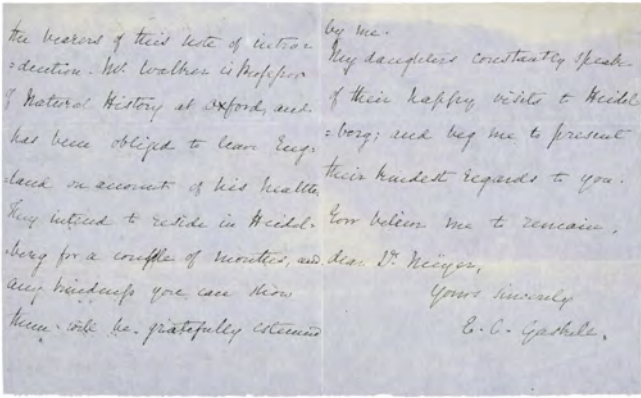 the bearers of this note of intro=
=duction. Mr. Walker is Professor
of Natural History at Oxford, and
has been obliged to leave Eng=
=land on account of his health.
They intend to reside in Heidel=
=berg for a couple of months, and
any kindness you can show
them will be gratefully esteemed
by me.
My daughters constantly speak
of their happy visits to Heidel=
=berg; and beg me to present
their kindest regards to you.
believe me to remain,
dear Dr.
Yours sincerely
E. C. Gaskell.